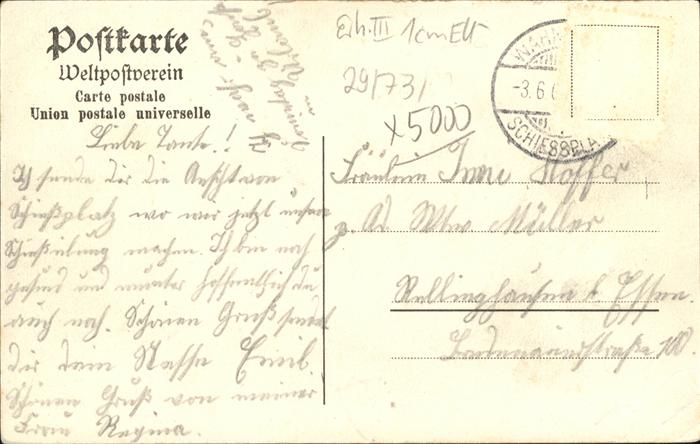 Postkarte
Weltpostverein
Carte postale
Union postale universelle
Erh. III 1cm Ett
29/73/
x5000
WAHN
-3.6.
SCHIESSPLA
Liebe Tante!
Ich sende dir die Ansicht von
Schießplatz wo wir jetzt unsere
Schießübung machen. Ich bin noch
gesund und munter hoffentlich du
auch noch. Schönen Gruß sendet
dir dein Neffe Emil.
Schönen Gruß von meiner
Frau Regina.
Fräulein Hoffer
p. Ad. Wtw Müller
Rellinghausen b Essen
100